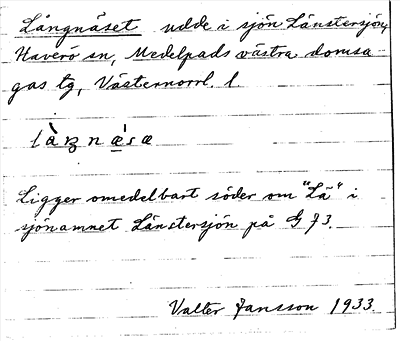 Långnäset udde i sjön Länstersjön,
Haverö sn, Medelpads västra domsa
gas tg, Västernorrl. l.
Ligger omedelbart söder om "Lä" i
sjönamnet Länstersjön på G 73.
Valter Jansson 1933.